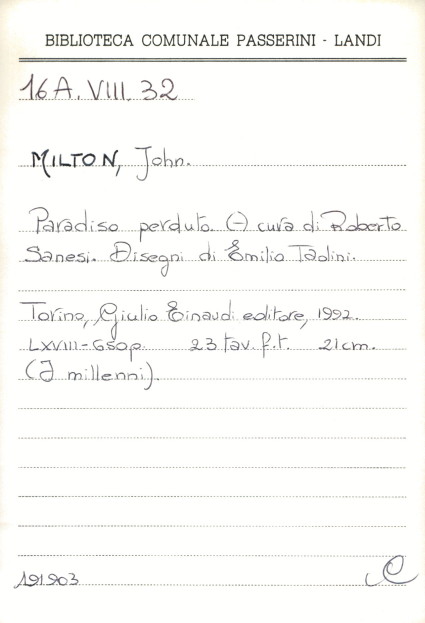 BIBLIOTECA COMUNALE PASSERINI - LANDI
16A.VIII.32
MILTON, John.
Paradiso perduto. (-) cura di Roberto
Sanesi. Disegni di Emilio Tadini.
Torino, Giulio Einaudi editore, 1992.
LXVIII-650p. 23 tav. f.t. 21cm.
(I millenni).
191903